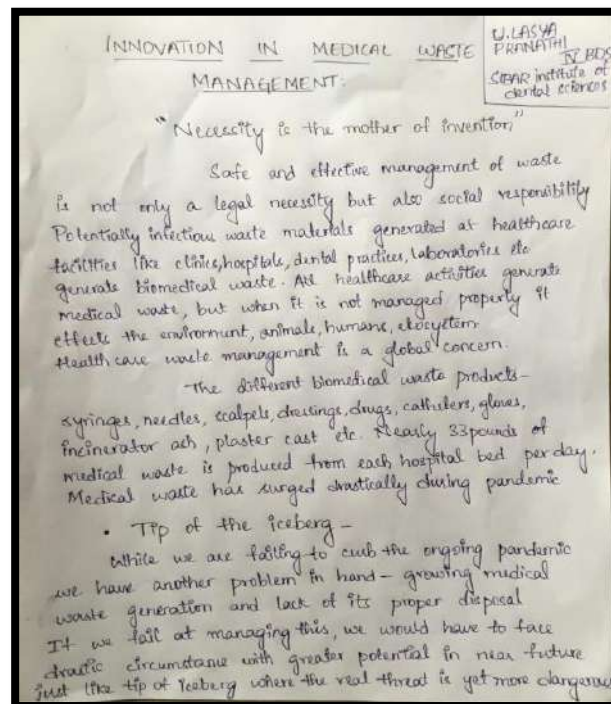 INNOVATION IN MEDICAL WASTE
MANAGEMENT:
U.LASYA
PRANATHI
IV BDS
SIBAR institute of
dental sciences
"Necessity is the mother of invention,"
Safe and effective management of waste
is not only a legal necessity but also social responsibility
Potentially infectious waste materials generated at healthcare
facilities like clinics, hospitals, dental practices, laboratories etc
generate biomedical waste. All healthcare activities generate
medical waste, but when it is not managed properly it
effects the environment, animals, humans, ekosystem.
Health care waste management is a global concern.
The different biomedical waste products-
syringes, needles, scalpels, dressings, drugs, catheters, gloves,
incinerator ash, plaster cast etc. Nearly 33 pounds of
medical waste is produced from each hospital bed per day.
Medical waste has surged drastically during pandemic
• Tip of the iceberg -
While we are failing to curb the ongoing pandemic
we have another problem in hand - growing medical
waste generation and lack of its proper disposal
If we fail at managing this, we would have to face
drastic circumstance with greater potential in near future
just like tip of iceberg where the real threat is yet more dangerous